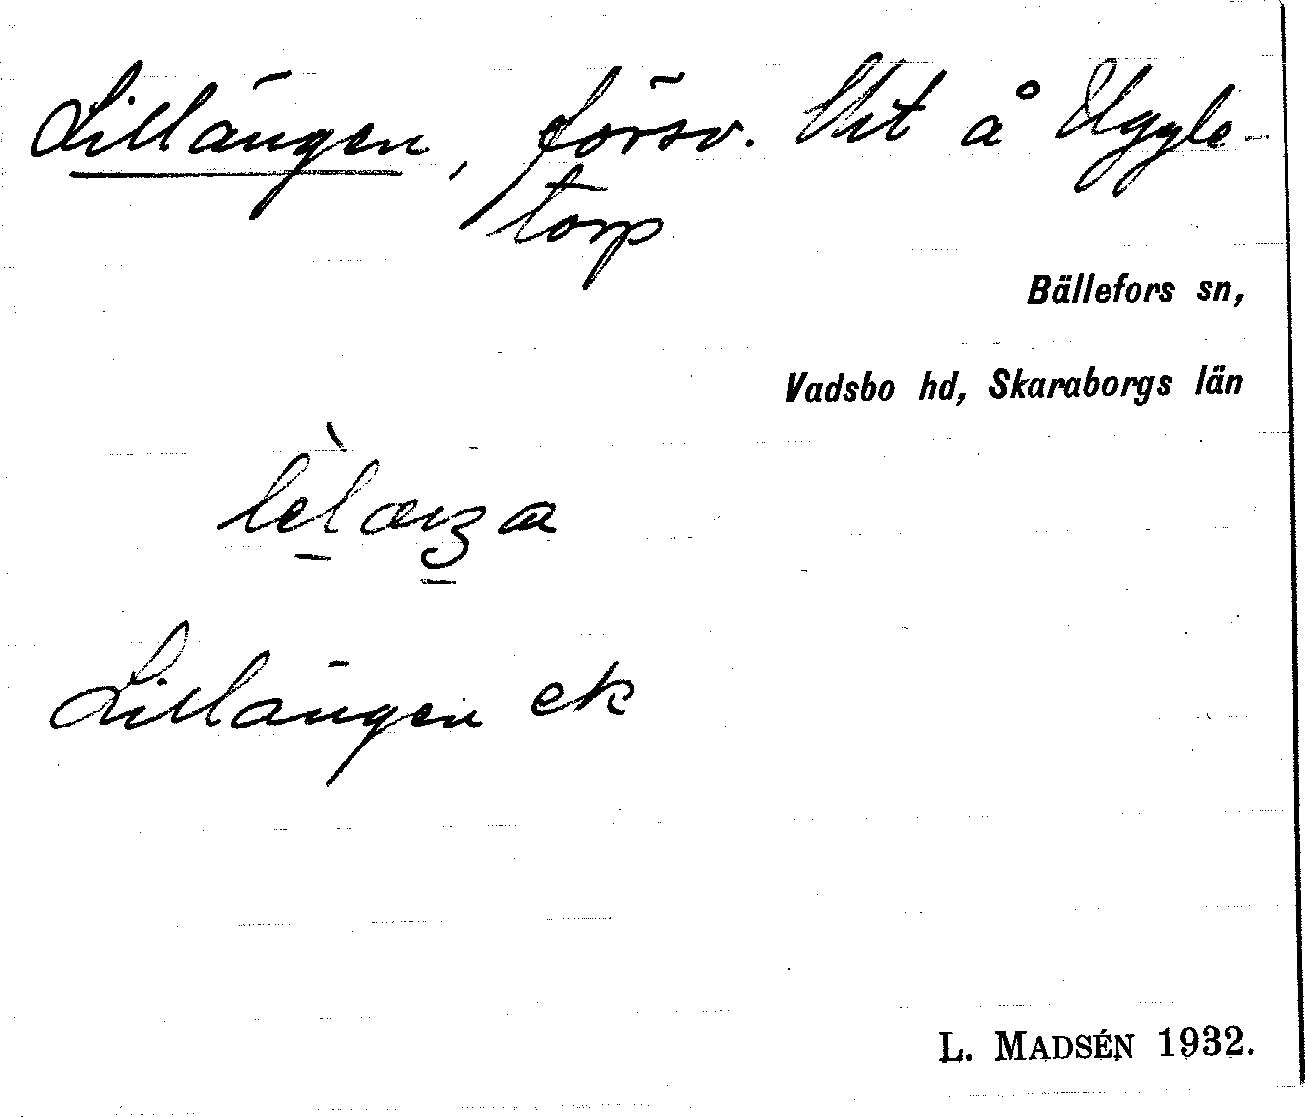 Lillängen, försv. lht å Uggle-
torp
Bällefors sn,
Vadsbo hd, Skaraborgs län
Lillängen ek
L. MADSÉN 1932.